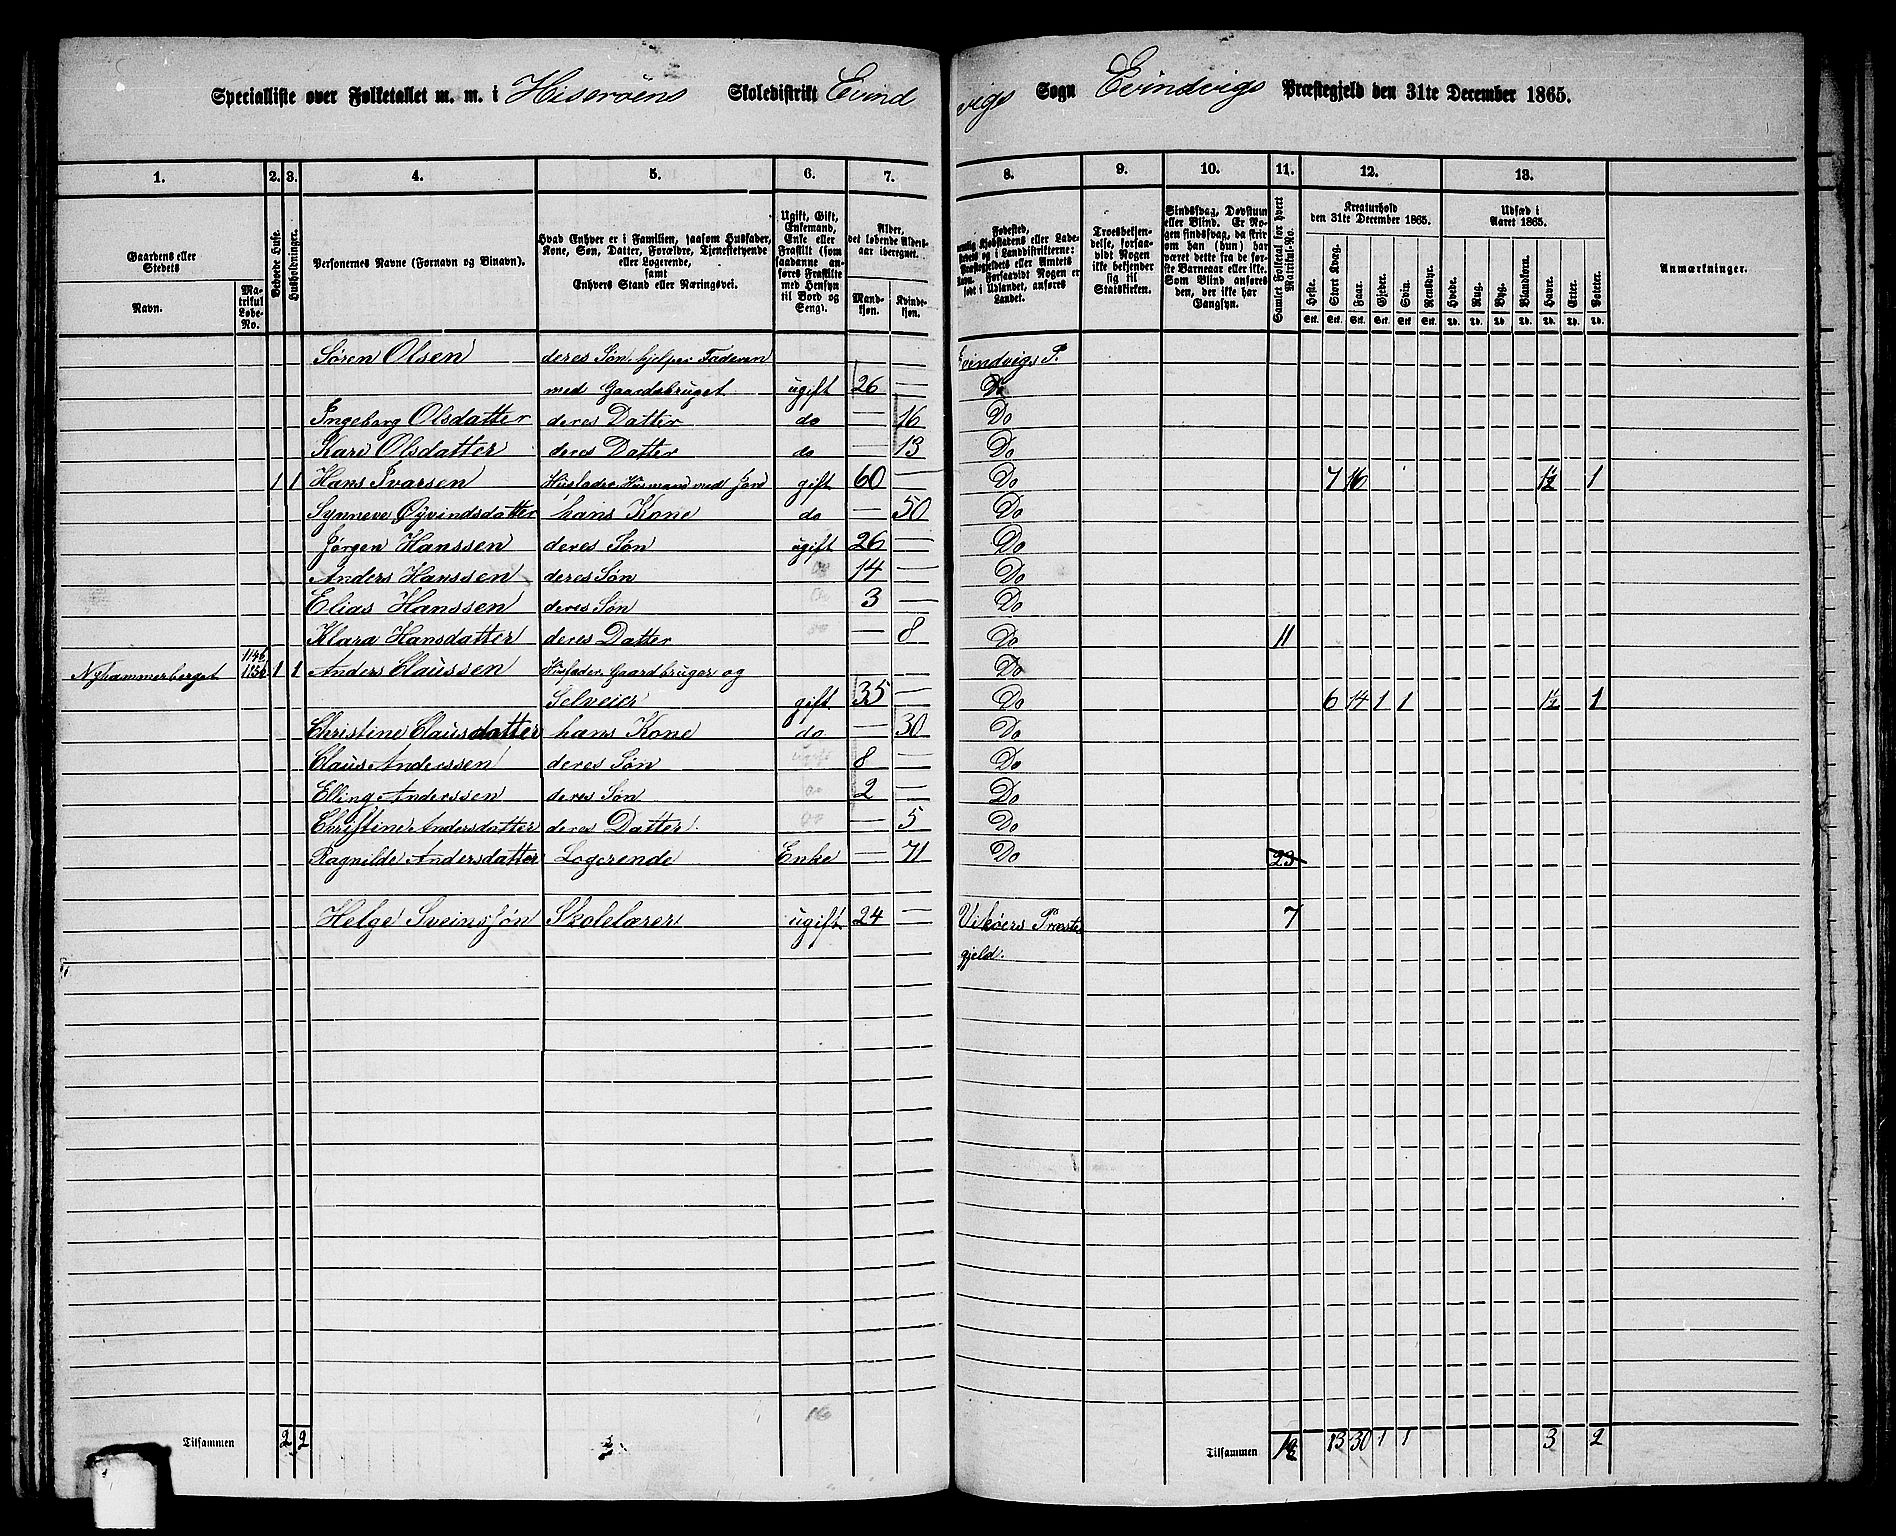 Specialliste over Folketallet m. m. i Hiserøens Skoledistrikt Evindvigs Sogn Evindvigs Præstegjeld den 31te December 1865.
1. 2. 3. 4. 5. 6. 7. 8. 9. 10. 11. 12. 13.
Gaardens eller Stedets
Navn.
Matrikul Løbe-No.
Beboede Huse.
Husholdninger.
Personernes Navne (Fornavn og Binavn).
Hvad Enhver er i Familien, saasom Husfader, Kone, Søn, Datter, Forældre, Tjenestetyende eller Logerende, samt Enhvers Stand eller Næringsvei.
Ugift, Gift, Enkemand, Enke eller Fraskilt (som saadanne anføres Fraskilte med Hensyn til Bord og Seng).
Alder, det løbende Aldersaar iberegnet.
Mandkjøn.
Kvindekjøn.
Fødested,
Troesbekjendelse, forsaavidt Nogen ikke bekjender sig til Statskirken.
Sindssvag, Døvstum eller Blind. Er Nogen sindssvag, da skrives om han (hun) har været dette fra de første Barneaar eller ikke. Som Blind anføres den, der ikke har Gangsyn.
Samlet Folketal for hvert Matrikul-No.
Kreaturhold den 31te December 1865.
Heste. Stort Kvæg. Faar. Gjeder. Svin. Rensdyr.
Udsæd i Aaret 1865.
Hvede. Rug. Byg. Blandkorn. Havre. Erter. Poteter.
Anmærkninger.
Søren Olsen deres Søn, hjelper Faderen Evindvigs P.
med Gaardsbruget ugift 26 — Do
Ingeborg Olsdatter deres Datter do — 16 Do
Kari Olsdatter deres Datter do — 13 Do
1 1 Hans Ivarsen Husfader, Husmand med Jord gift 60 — Do 7 16 1½ 1
Synneve Øyvindsdatter hans Kone do — 50 Do
Jørgen Hanssen deres Søn ugift 26 — Do
Anders Hanssen deres Søn do 14 — Do
Elias Hanssen deres Søn do 3 — Do
Klara Hansdatter deres Datter do — 8 Do 11
Nyhammerberget 114b 115b 1 1 Anders Claussen Husfader, Gaardbruger og Do
Selveier gift 35 — Do 6 14 1 1 1½ 1
Christine Clausdatter hans Kone do — 30 Do
Claus Anderssen deres Søn ugift 8 — Do
Elling Anderssen deres Søn do 2 — Do
Christine Andersdatter deres Datter do — 5 Do
Ragnilde Andersdatter Logerende Enke — 71 Do 23
Helge Sveinssøn Skolelærer ugift 24 — Vikøers Præste 7
gjeld.
16
Tilsammen 2 2 Tilsammen 18 13 30 1 1 3 2